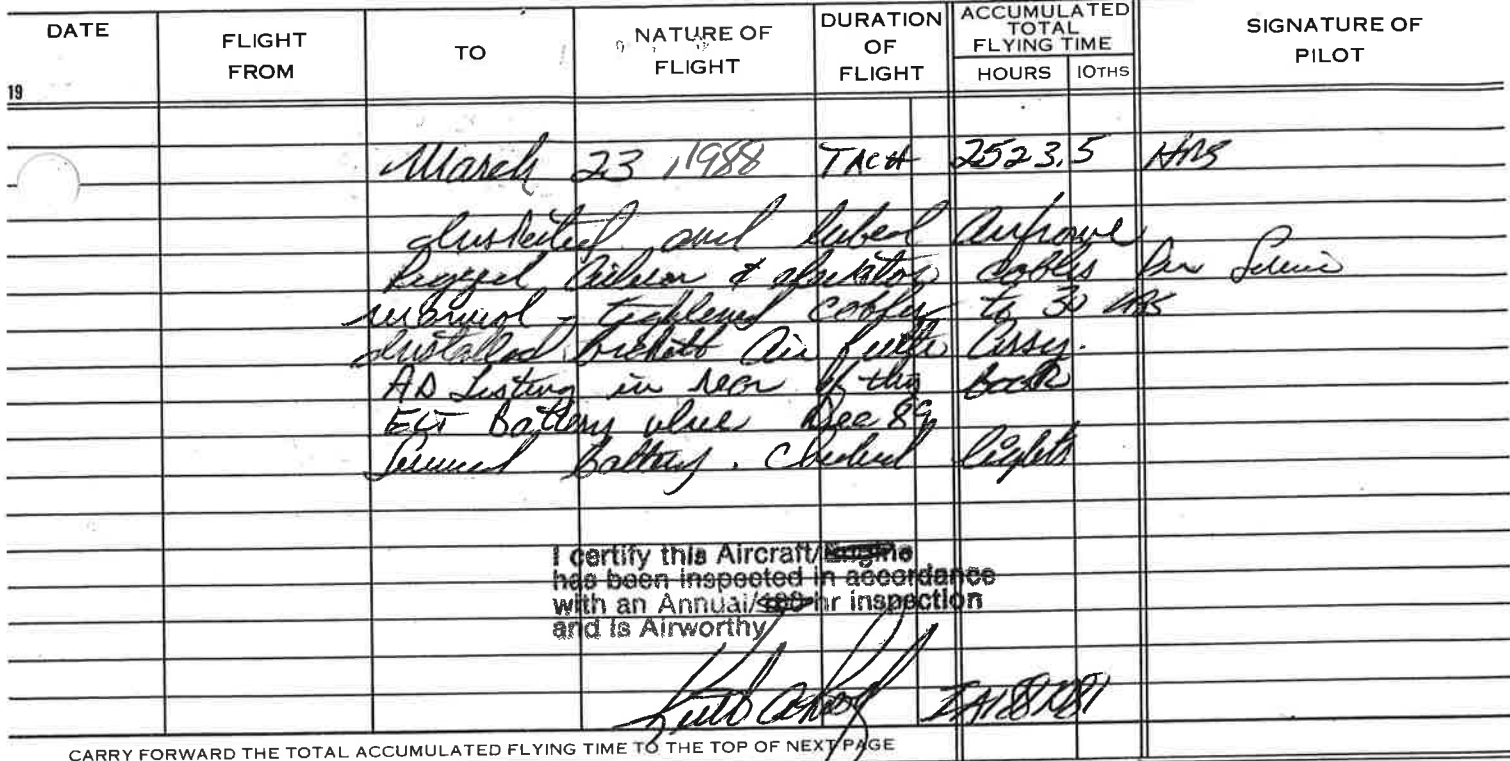 DATE FLIGHT FROM TO NATURE OF FLIGHT DURATION OF FLIGHT ACCUMULATED TOTAL FLYING TIME HOURS 10THS SIGNATURE OF PILOT
19
March 23, 1988 TACH 2523.5 HRS
and lubed Airframe
Rigged Aileron & cables Per
manual - tightened to 30
Installed Air Assy.
AD Listing in rear of this Book
ELT Battery due Dec 89
Battery. Checked lights
I certify this Aircraft/Engine
has been inspected in accordance
with an Annual/100 hr inspection
and is Airworthy
CARRY FORWARD THE TOTAL ACCUMULATED FLYING TIME TO THE TOP OF NEXT PAGE